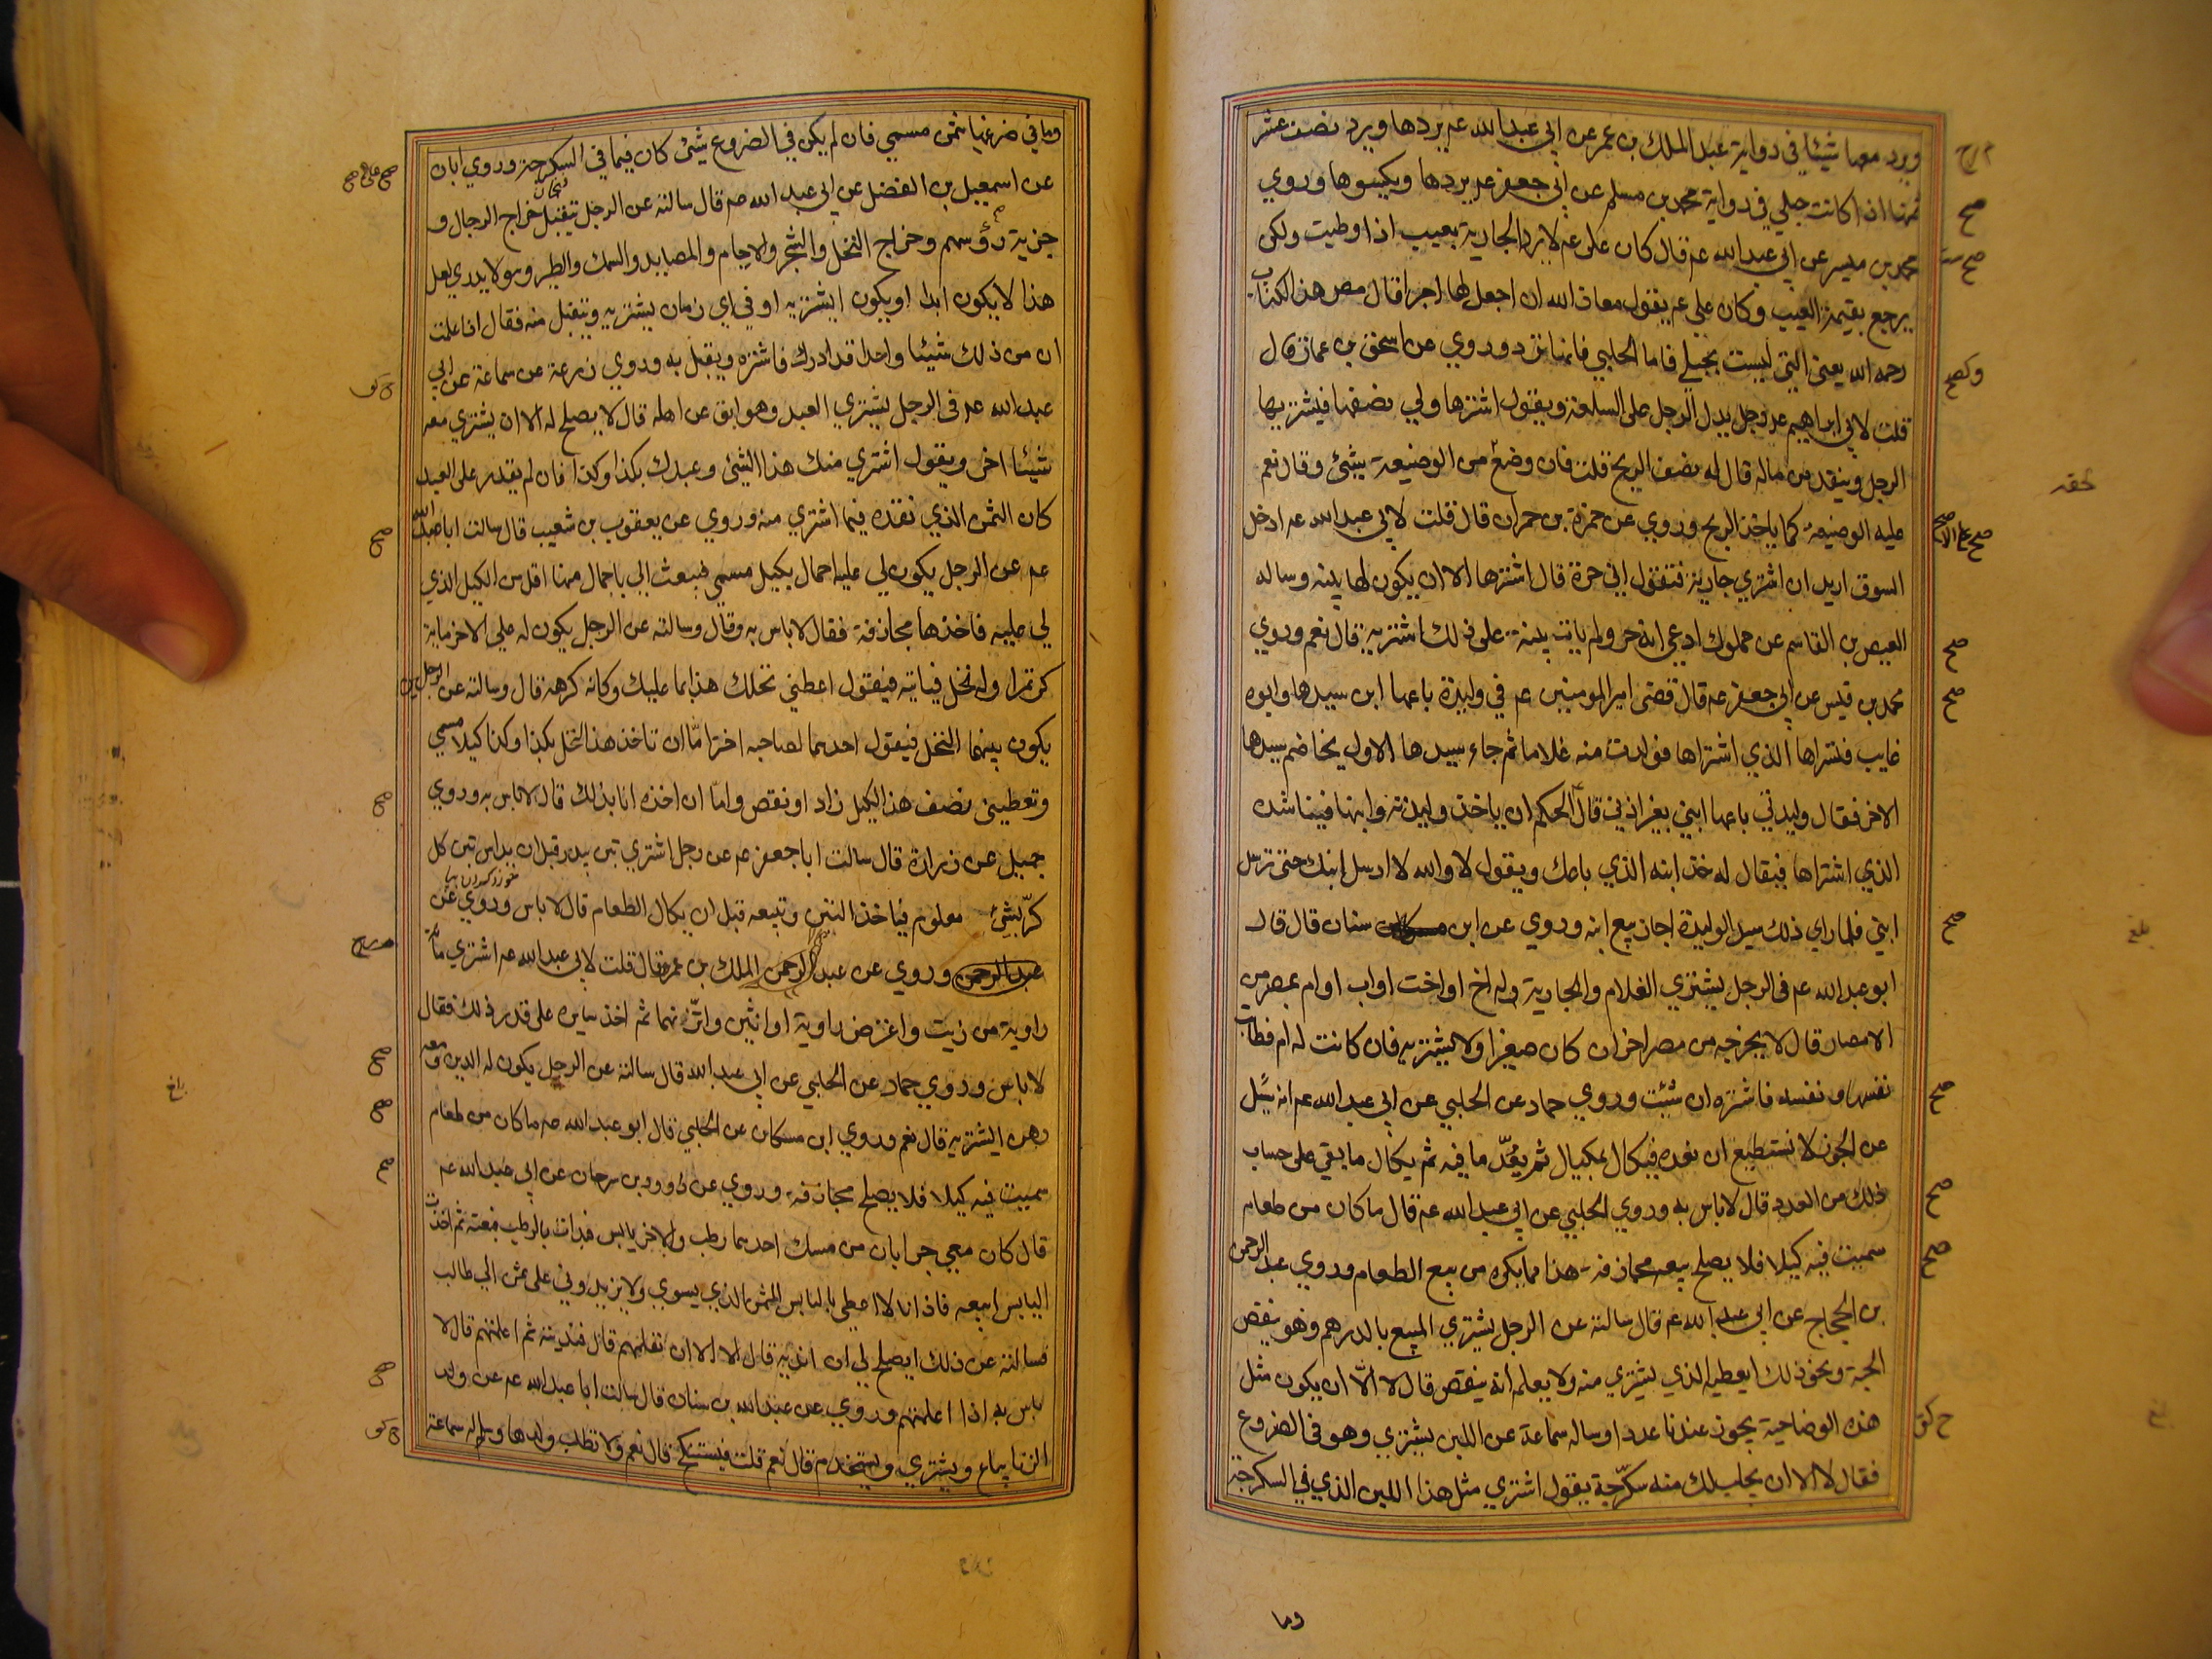 ويرد معها شيئا في رواية عبد الملك بن عمر عن ابي عبد الله عم يردها ويرد نصف عشر
ثمنها اذا كانت حبلي في رواية محمد بن مسلم عن ابي جعفر عم يردها ويكسوها وروي
محمد بن ميسر عن ابي عبد الله عم قال كان علي عم لا يرد الجارية بعيب اذا وطيت ولكن
يرجع بقيمة العيب وكان علي عم يقول معاذ الله ان اجعل لها اجرا قال مص هذا الكتاب
رحمه الله يعني التي ليست بحبلي فاما الحبلي فانها ترد وروي عن اسحق بن عمار قال
قلت لابي ابراهيم عم رجل يدل الرجل على السلعة ويقول اشترها ولي نصفها فيشتريها
الرجل وينقد من ماله قال له نصف الربح قلت فان وضع من الوضيعة شئ قال نعم
عليه الوضيعة كما ياخذ الربح وروي عن حمزة بن حمران قال قلت لابي عبد الله عم ادخل
السوق اريد ان اشتري جارية فتقول اني حرة قال اشترها الا ان يكون لها بينة وساله
العيص بن القاسم عن مملوك ادعى انه حر ولم يات ببينة على ذلك اشتريه قال نعم وروي
محمد بن قيس عن ابي جعفر عم قال قضى امير المومنين عم في وليدة باعها ابن سيدها وابوه
غايب فتسراها الذي اشتراها فولدت منه غلاما ثم جاء سيدها الاول يخاصم سيدها
الاخر فقال وليدتي باعها ابني بغير اذني قال الحكم ان ياخذ وليدته وابنها فيناشده
الذي اشتراها فيقال له خذ ابنه الذي باعك ويقول لا والله لا ارسل ابنك حتى ترسل
ابني فلما راي ذلك سيد الوليدة اجاز بيع ابنه وروي عن ابن سنان قال قال
ابو عبد الله عم في الرجل يشتري الغلام والجارية وله اخ او اخت او اب او ام بمصر من
الامصار قال لا يخرجه من مصر اخر ان كان صغيرا ولا يشتريه فان كانت له ام فطابت
نفسها ونفسه فاشتره ان شئت وروي حماد عن الحلبي عن ابي عبد الله عم انه سئل
عن الجوز لا نستطيع ان نعده فيكال بمكيال ثم يعد ما فيه ثم يكال ما بقي على حساب
ذلك من العدد قال لا باس به وروي الحلبي عن ابي عبد الله عم قال ما كان من طعام
سميت فيه كيلا فلا يصلح بيعه مجازفة هذا مما يكره من بيع الطعام وروي عبد الرحمن
بن الحجاج عن ابي عبد الله عم قال سالته عن الرجل يشتري المبيع بالدرهم وهو ينقص
الحبة ونحو ذلك ايعطيه الذي يشتري منه ولا يعلمه انه ينقص قال لا الا ان يكون مثل
هذه الوضاحية يجوز عندنا عددا وساله سماعة عن اللبن يشتري وهو في الضروع
فقال لا الا ان يحلب لك منه سكرجة يقول اشتري مثل هذا اللبن الذي في السكرجة
وما
وما في ضرعها بثمن مسمي فان لم يكن في الضروع شئ كان فيما في السكرجة وروي ابان
عن اسمعيل بن الفضل عن ابي عبد الله عم قال سالته عن الرجل يتقبل خراج الرجال و
جزية رؤسهم وخراج النخل والشجر والاجام والمصايد والسمك والطير وهو لا يدري لعل
هذا لا يكون ابدا او يكون ايشتريه او في اي زمان يشتريه ويتقبل منه فقال اذا علمت
ان من ذلك شيئا واحدا قد ادرك فاشتره وتقبل به وروي زرعة عن سماعة عن ابي
عبد الله عم في الرجل يشتري العبد وهو ابق عن اهله قال لا يصلح له الا ان يشتري معه
شيئا اخر ويقول اشتري منك هذا الشئ وعبدك بكذا وكذا فان لم يقدر على العبد
كان الثمن الذي نقده فيما اشتري منه وروي عن يعقوب بن شعيب قال سالت ابا عبد الله
عم عن الرجل يكون لي عليه احمال بكيل مسمي فبعث الي باحمال منها اقل من الكيل الذي
لي عليه فاخذها مجازفة فقال لا باس به وقال وسالته عن الرجل يكون له على الاخر ماية
كر تمرا وله نخل فياتيه فيقول اعطني نخلك هذا بما عليك وكانه كرهه قال وسالته عن الرجلين
يكون بينهما النخل فيقول احدهما لصاحبه اختر اما ان تاخذ هذا النخل بكذا وكذا كيلا مسمي
وتعطيني نصف هذا الكيل زاد او نقص واما ان اخذه انا بذلك قال لا باس به وروي
جميل عن زرارة قال سالت ابا جعفر عم عن رجل اشتري تبن بيدر قبل ان يداس تبن كل
كر بشئ معلوم فياخذ التبن ويبيعه قبل ان يكال الطعام قال لا باس وروي عن
عبد الرحمن وروي عن عبد الرحمن الملك بن عمرو قال قلت لابي عبد الله عم اشتري ماية
راوية من زيت واعترض راوية او اثنين واتزنهما ثم اخذ سايره على قدر ذلك فقال
لا باس وروي حماد عن الحلبي عن ابي عبد الله قال سالته عن الرجل يكون له الدين ومعه
رهن ايشتريه قال نعم وروي ابن مسكان عن الحلبي قال ابو عبد الله عم ما كان من طعام
سميت فيه كيلا فلا يصلح مجازفة وروي عن داوود بن سرحان عن ابي عبد الله عم
قال كان معي جرابان من مسك احدهما رطب والاخر يابس فبدات بالرطب فبعته ثم اخذت
اليابس ابيعه فاذا انا لا اعطي باليابس الثمن الذي يسوي ولا يزيدوني على ثمن الرطب
فسالته عن ذلك ايصلح لي ان انديه قال لا الا ان تعلمهم قال فنديته ثم اعلمتهم قال لا
باس به اذا اعلمتهم وروي عن عبد الله بن سنان قال سالت ابا عبد الله عم عن ولد
الزنا يباع ويشتري ويستخدم قال نعم قلت فيستنكح قال نعم ولا تطلب ولدها وساله سماعة